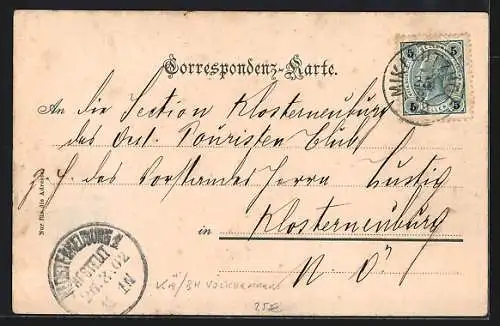 5 5
MIK
5 5
Correspondenz-Karte.
An die Section Klosterneuburg
des Oest. Touristen Club
z. H. des Vorstandes Herrn Lustig
in Klosterneuburg
N. Ö.
Nur für die Adresse.
KLOSTERNEUBURG 1
BESTELLT
26.8.02
25€